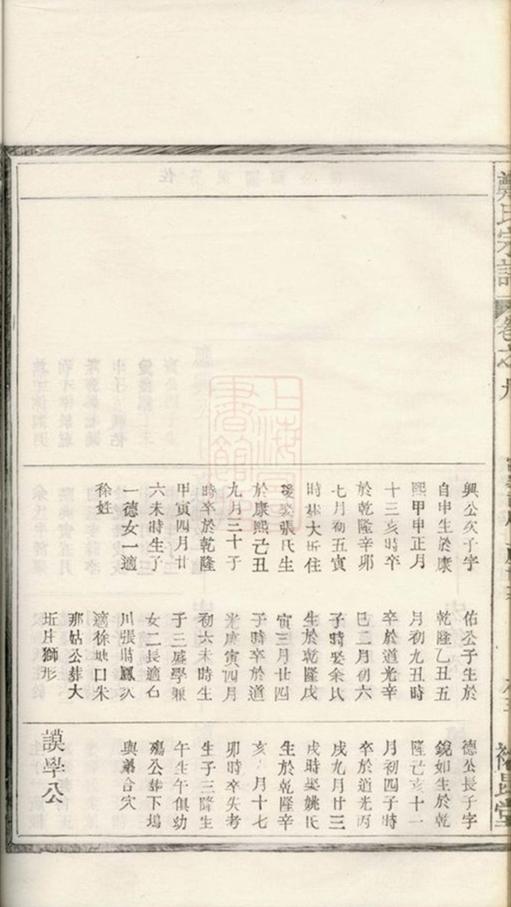 鄭氏宗譜
卷之九
興公次子字
自申生於康
熙甲申正月
十三亥時卒
於乾隆辛卯
七月初五寅
時葬大坵住
後娶張氏生
於康熙己丑
九月三十子
時卒於乾隆
甲寅四月廿
六未時生子
一德女一適
徐姓
佑公子生於
乾隆乙丑五
月初九丑時
卒於道光辛
巳二月初六
子時娶余氏
生於乾隆戊
寅三月廿四
子時卒於道
光庚寅四月
初六未時生
子三學兼
女二長適石
川張時鳳次
適徐坡口朱
那姑公葬大
坵庄獅形
德公長子字
銳如生於乾
隆己亥十一
月初四子時
卒於道光丙
戌九月廿三
戌時娶姚氏
生於乾隆辛
亥月十七
卯時卒失考
生子三隆生
午生午俱幼
殤公葬下塢
與弟合穴
謨學公
上海圖書館藏